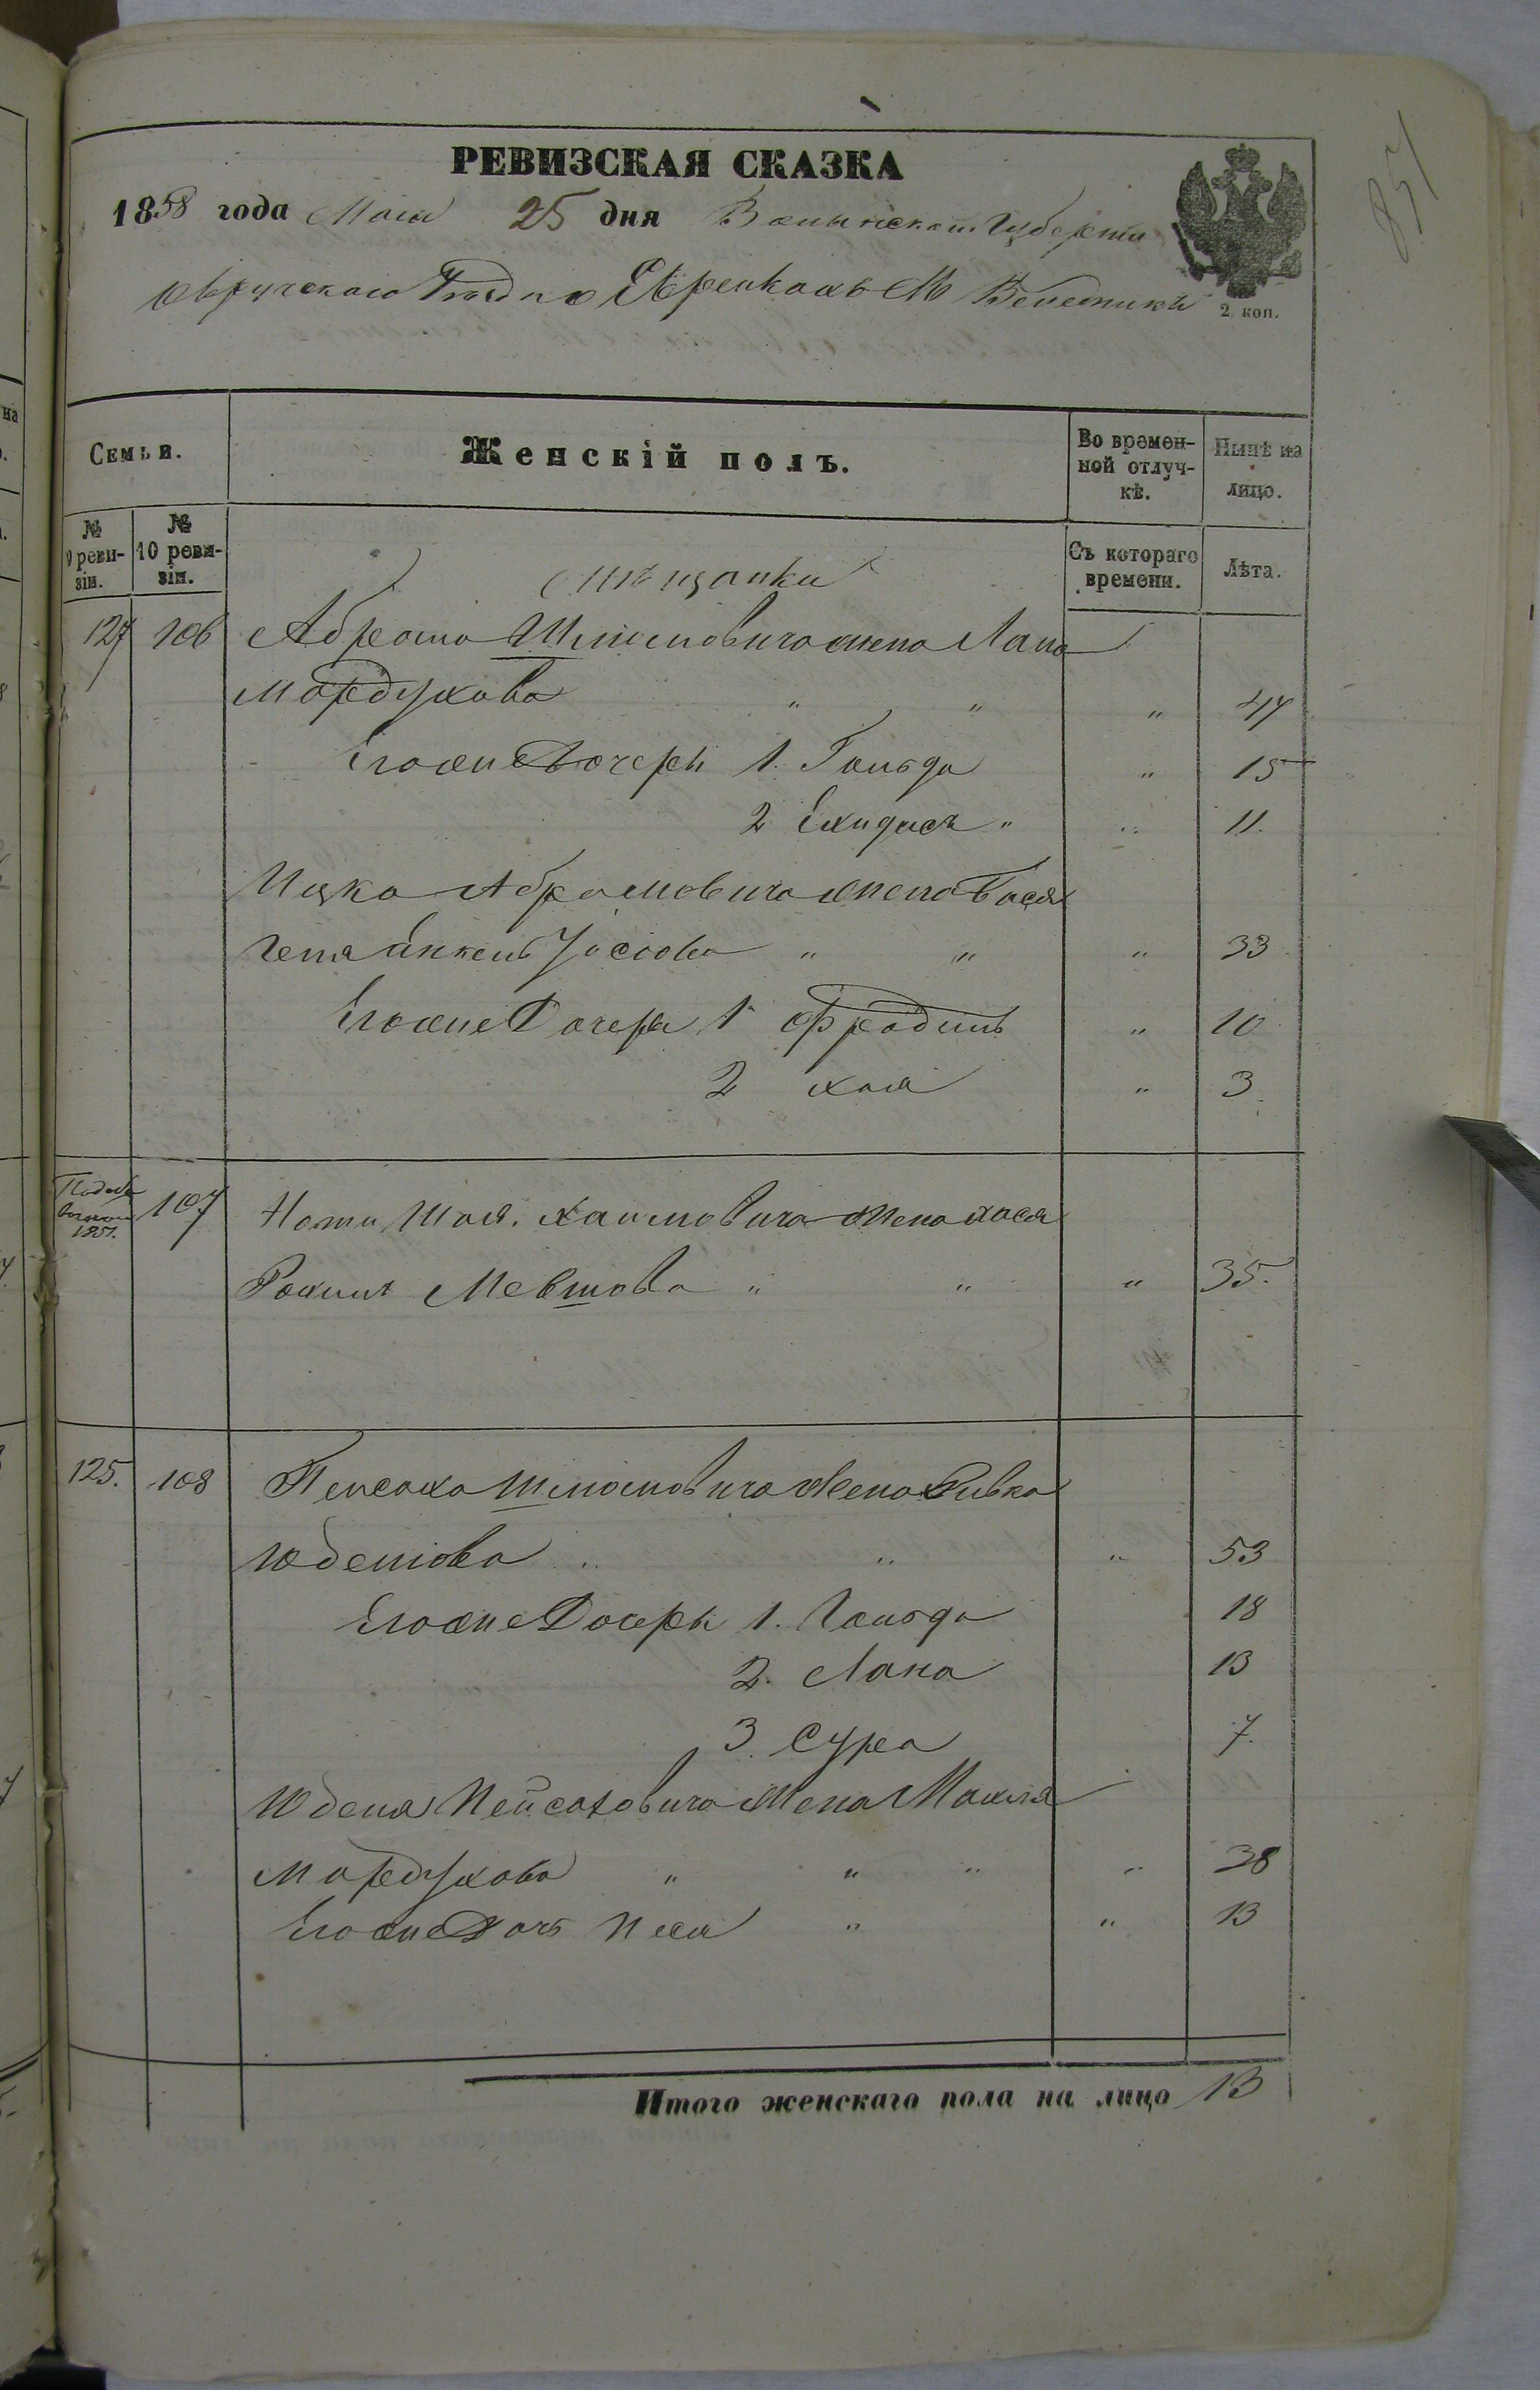 851
РЕВИЗСКАЯ СКАЗКА
1858 года Мая 25 дня Волынской Губерніи
Овручскаго Уѣзда о Евреяхъ М. Веледникъ
2 коп.
Семьи. Женскій полъ. Во времен-ной отлуч-кѣ. Нынѣ на лицо.
№ 9 реви-зіи. № 10 реви-зіи. Съ котораго времени. Лѣта.
Мѣщанки
127 106 Абрама Шлиомовича жена Лана
Мордухова " " " 47
Егоже Дочери 1. Гольда " 15
2 Ехидась " " 11.
Ицка Абрамовича жена Бася
Уосіова " " " 33
Егоже Дочери 1 Фрадиль " 10
2 Хая " 3
107 Хаимовича жена Хася
Мевшова " " " 35.
125. 108 Пейсаха Шлиомовича жена Ривка
Юделіова " " " 53
Егоже Дочери 1. Гольда 18
2. Лана 13
3. Сура 7.
Юделя Пейсаховича жена Махля
Мордухова " " " " 38
Егоже Дочь Песя " " 13
Итого женскаго пола на лицо 13